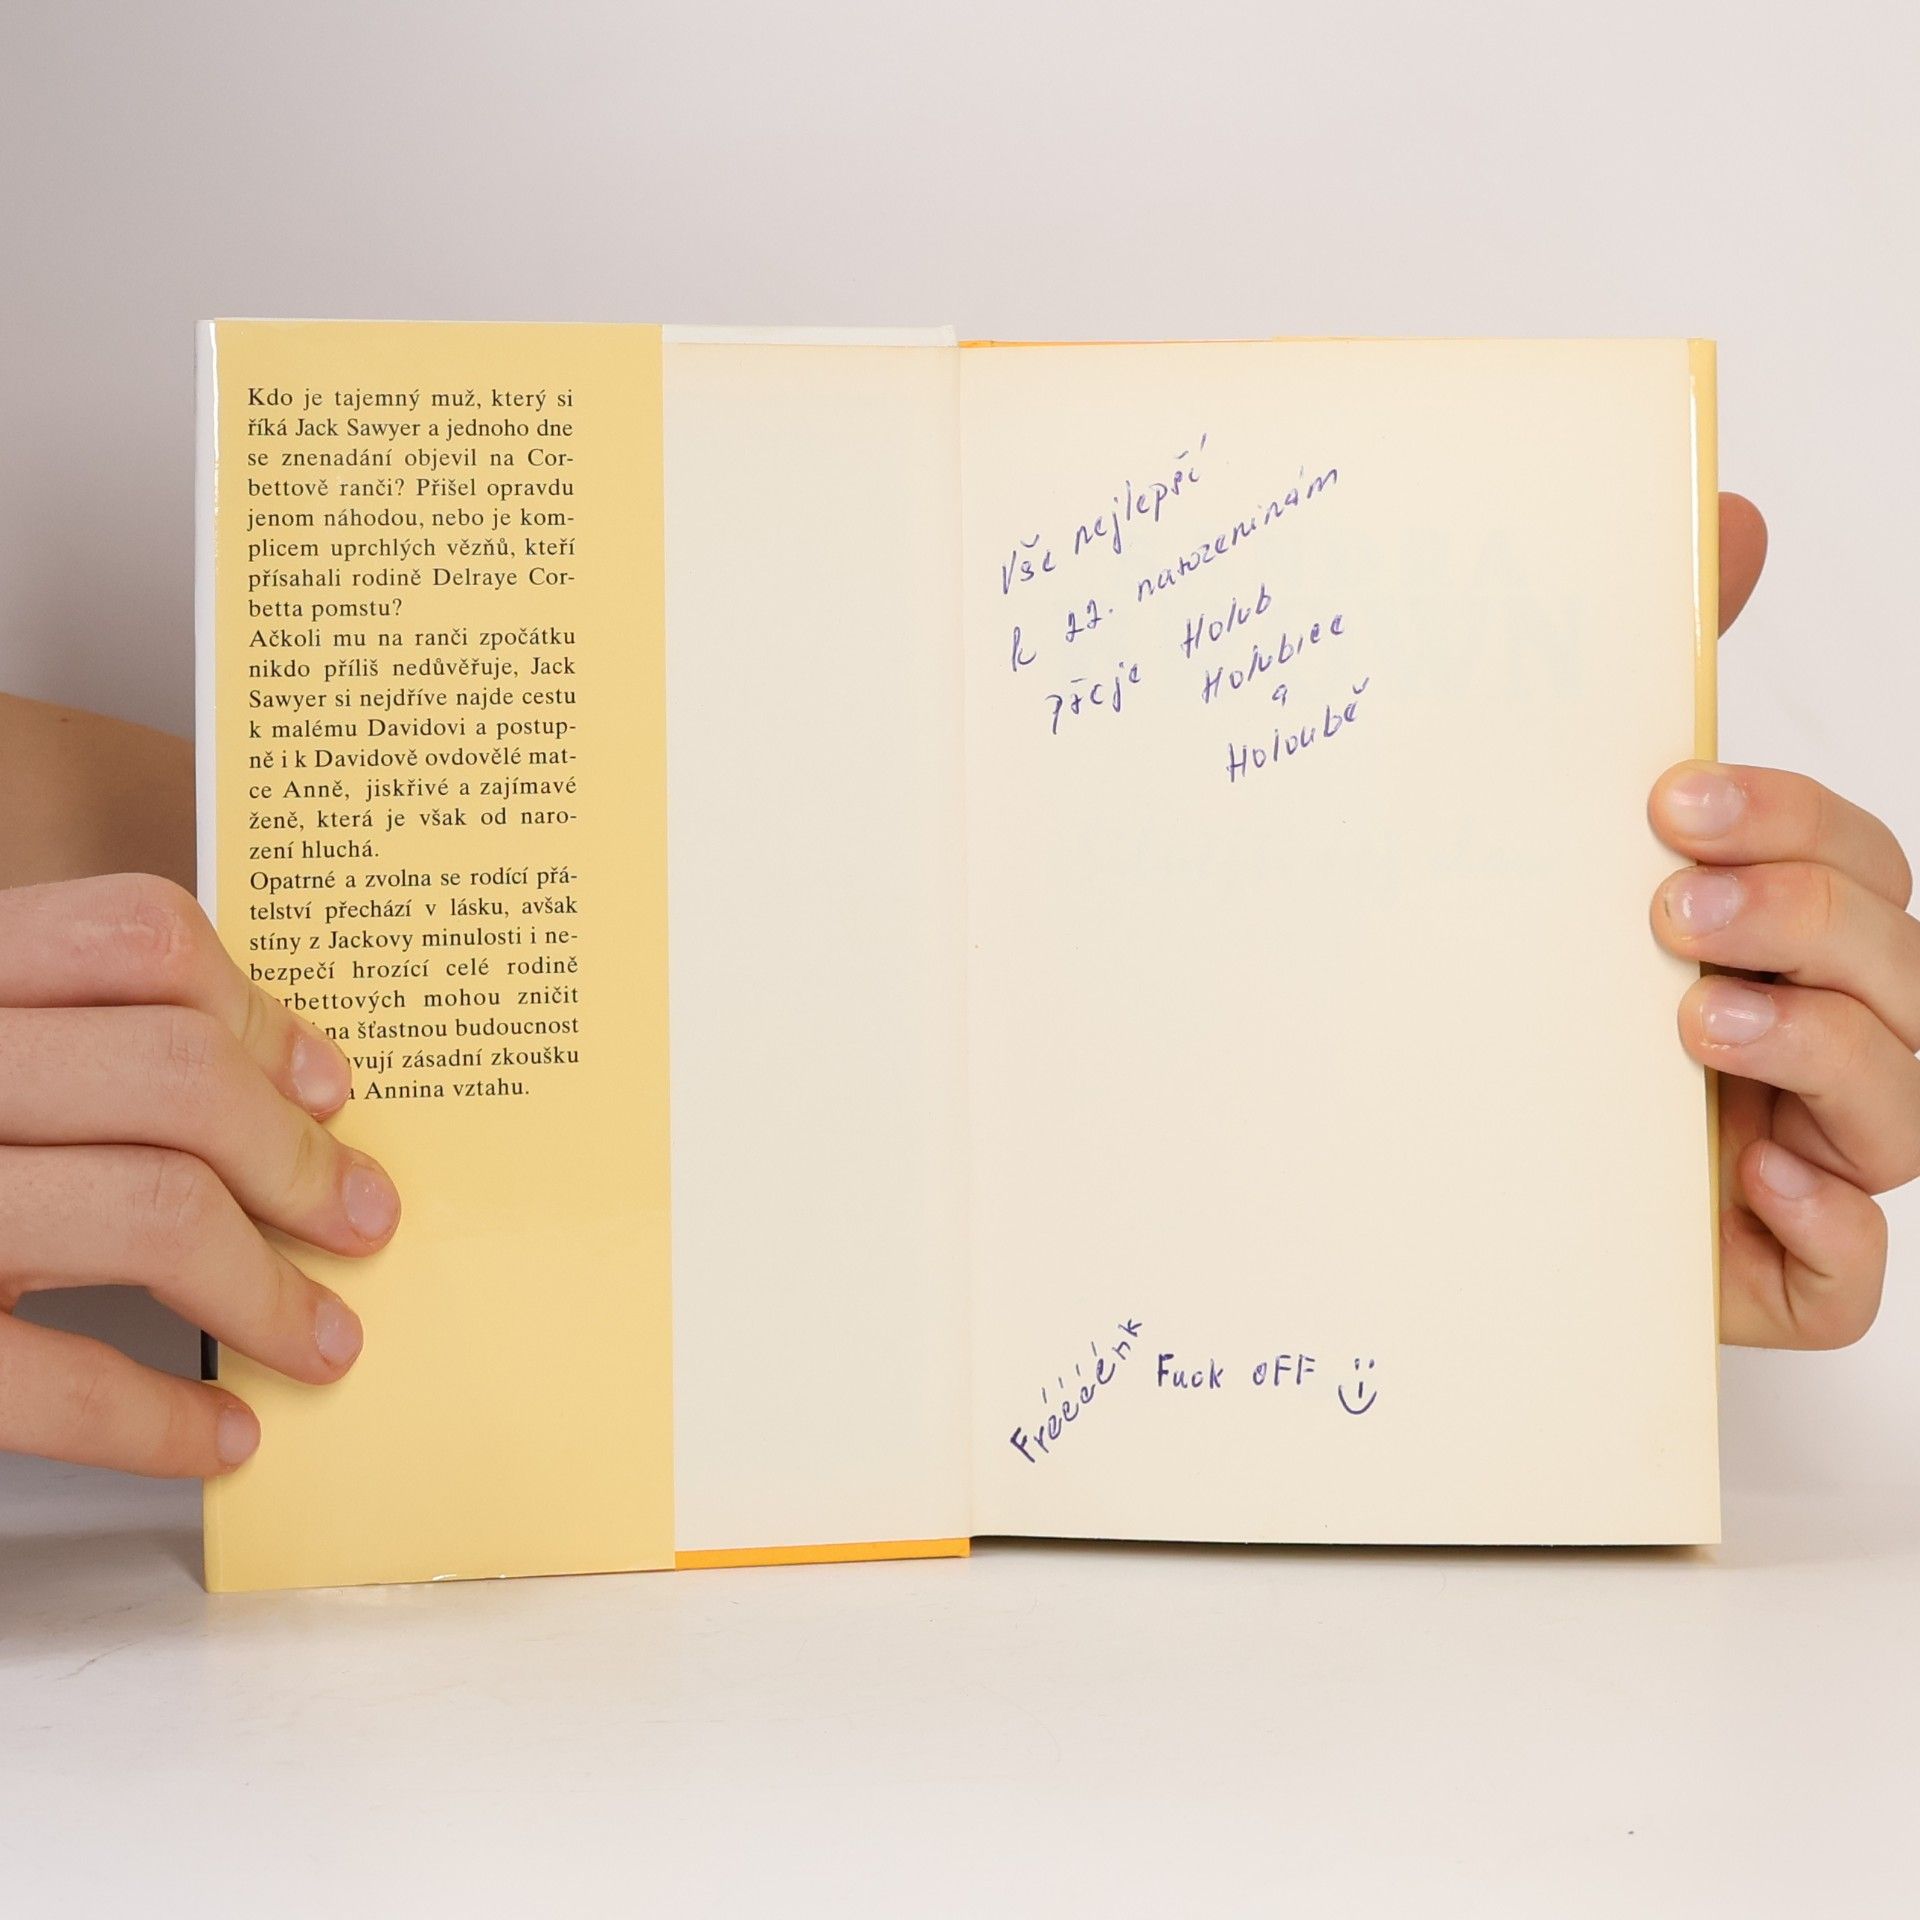 Kdo je tajemný muž, který si
říká Jack Sawyer a jednoho dne
se znenadání objevil na Cor-
bettově ranči? Přišel opravdu
jenom náhodou, nebo je kom-
plicem uprchlých vězňů, kteří
přísahali rodině Delraye Cor-
betta pomstu?
Ačkoli mu na ranči zpočátku
nikdo příliš nedůvěřuje, Jack
Sawyer si nejdříve najde cestu
k malému Davidovi a postup-
ně i k Davidově ovdovělé mat-
ce Anně, jiskřivé a zajímavé
ženě, která je však od naro-
zení hluchá.
Opatrné a zvolna se rodící přá-
telství přechází v lásku, avšak
stíny z Jackovy minulosti i ne-
bezpečí hrozící celé rodině
rbettových mohou zničit
na šťastnou budoucnost
vují zásadní zkoušku
Annina vztahu.
Vše nejlepší
k 22. narozeninám
přeje Holub
Holubice
a
Holoubě
Fréééénk
Fuck oFF